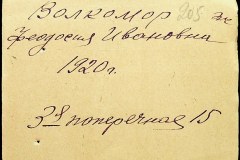 Волкомор 205
Феодосия Ивановна
1920 г.
3я поперечная 15